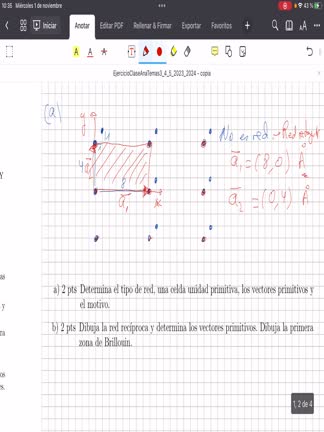 10:35 Miércoles 1 de noviembre
43 %
Iniciar
Anotar
Editar PDF
Rellenar & Firmar
Exportar
Favoritos
EjercicioClaseAraTemas3_4_5_2023_2024 - copia
(a)
y
4
No es red.
4
8
a̅₁
x
a̅₁ = (8,0) Å
a̅₂ = (0,4) Å
Y
as
a) 2 pts Determina el tipo de red, una celda unidad primitiva, los vectores primitivos y
el motivo.
y
b) 2 pts Dibuja la red recíproca y determina los vectores primitivos. Dibuja la primera
ra
zona de Brillouin.
os
s.
1, 2 de 4